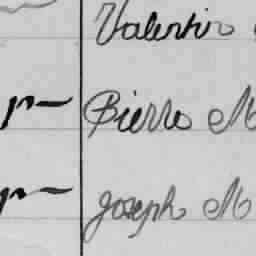 Valentin
Pierre M
Joseph M